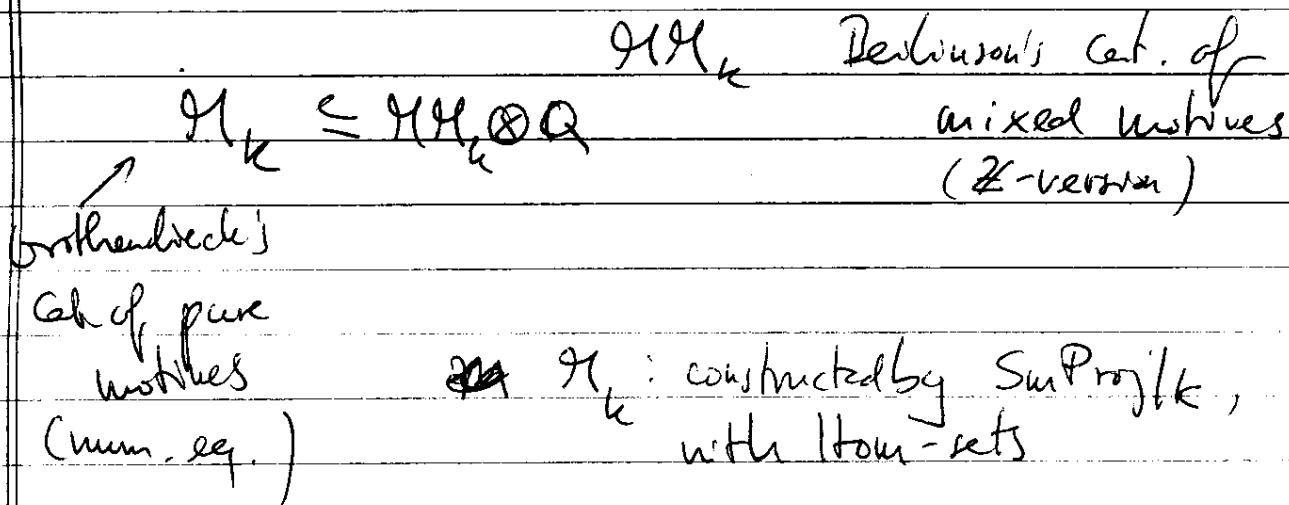 MM_k Beilinson's Cat. of
M_k ⊆ MM_k ⊗ Q mixed motives
(Z-version)
Grothendieck's
Cat of pure
motives M_k : constructed by SmProj/k,
(num. eq.) with Hom-sets